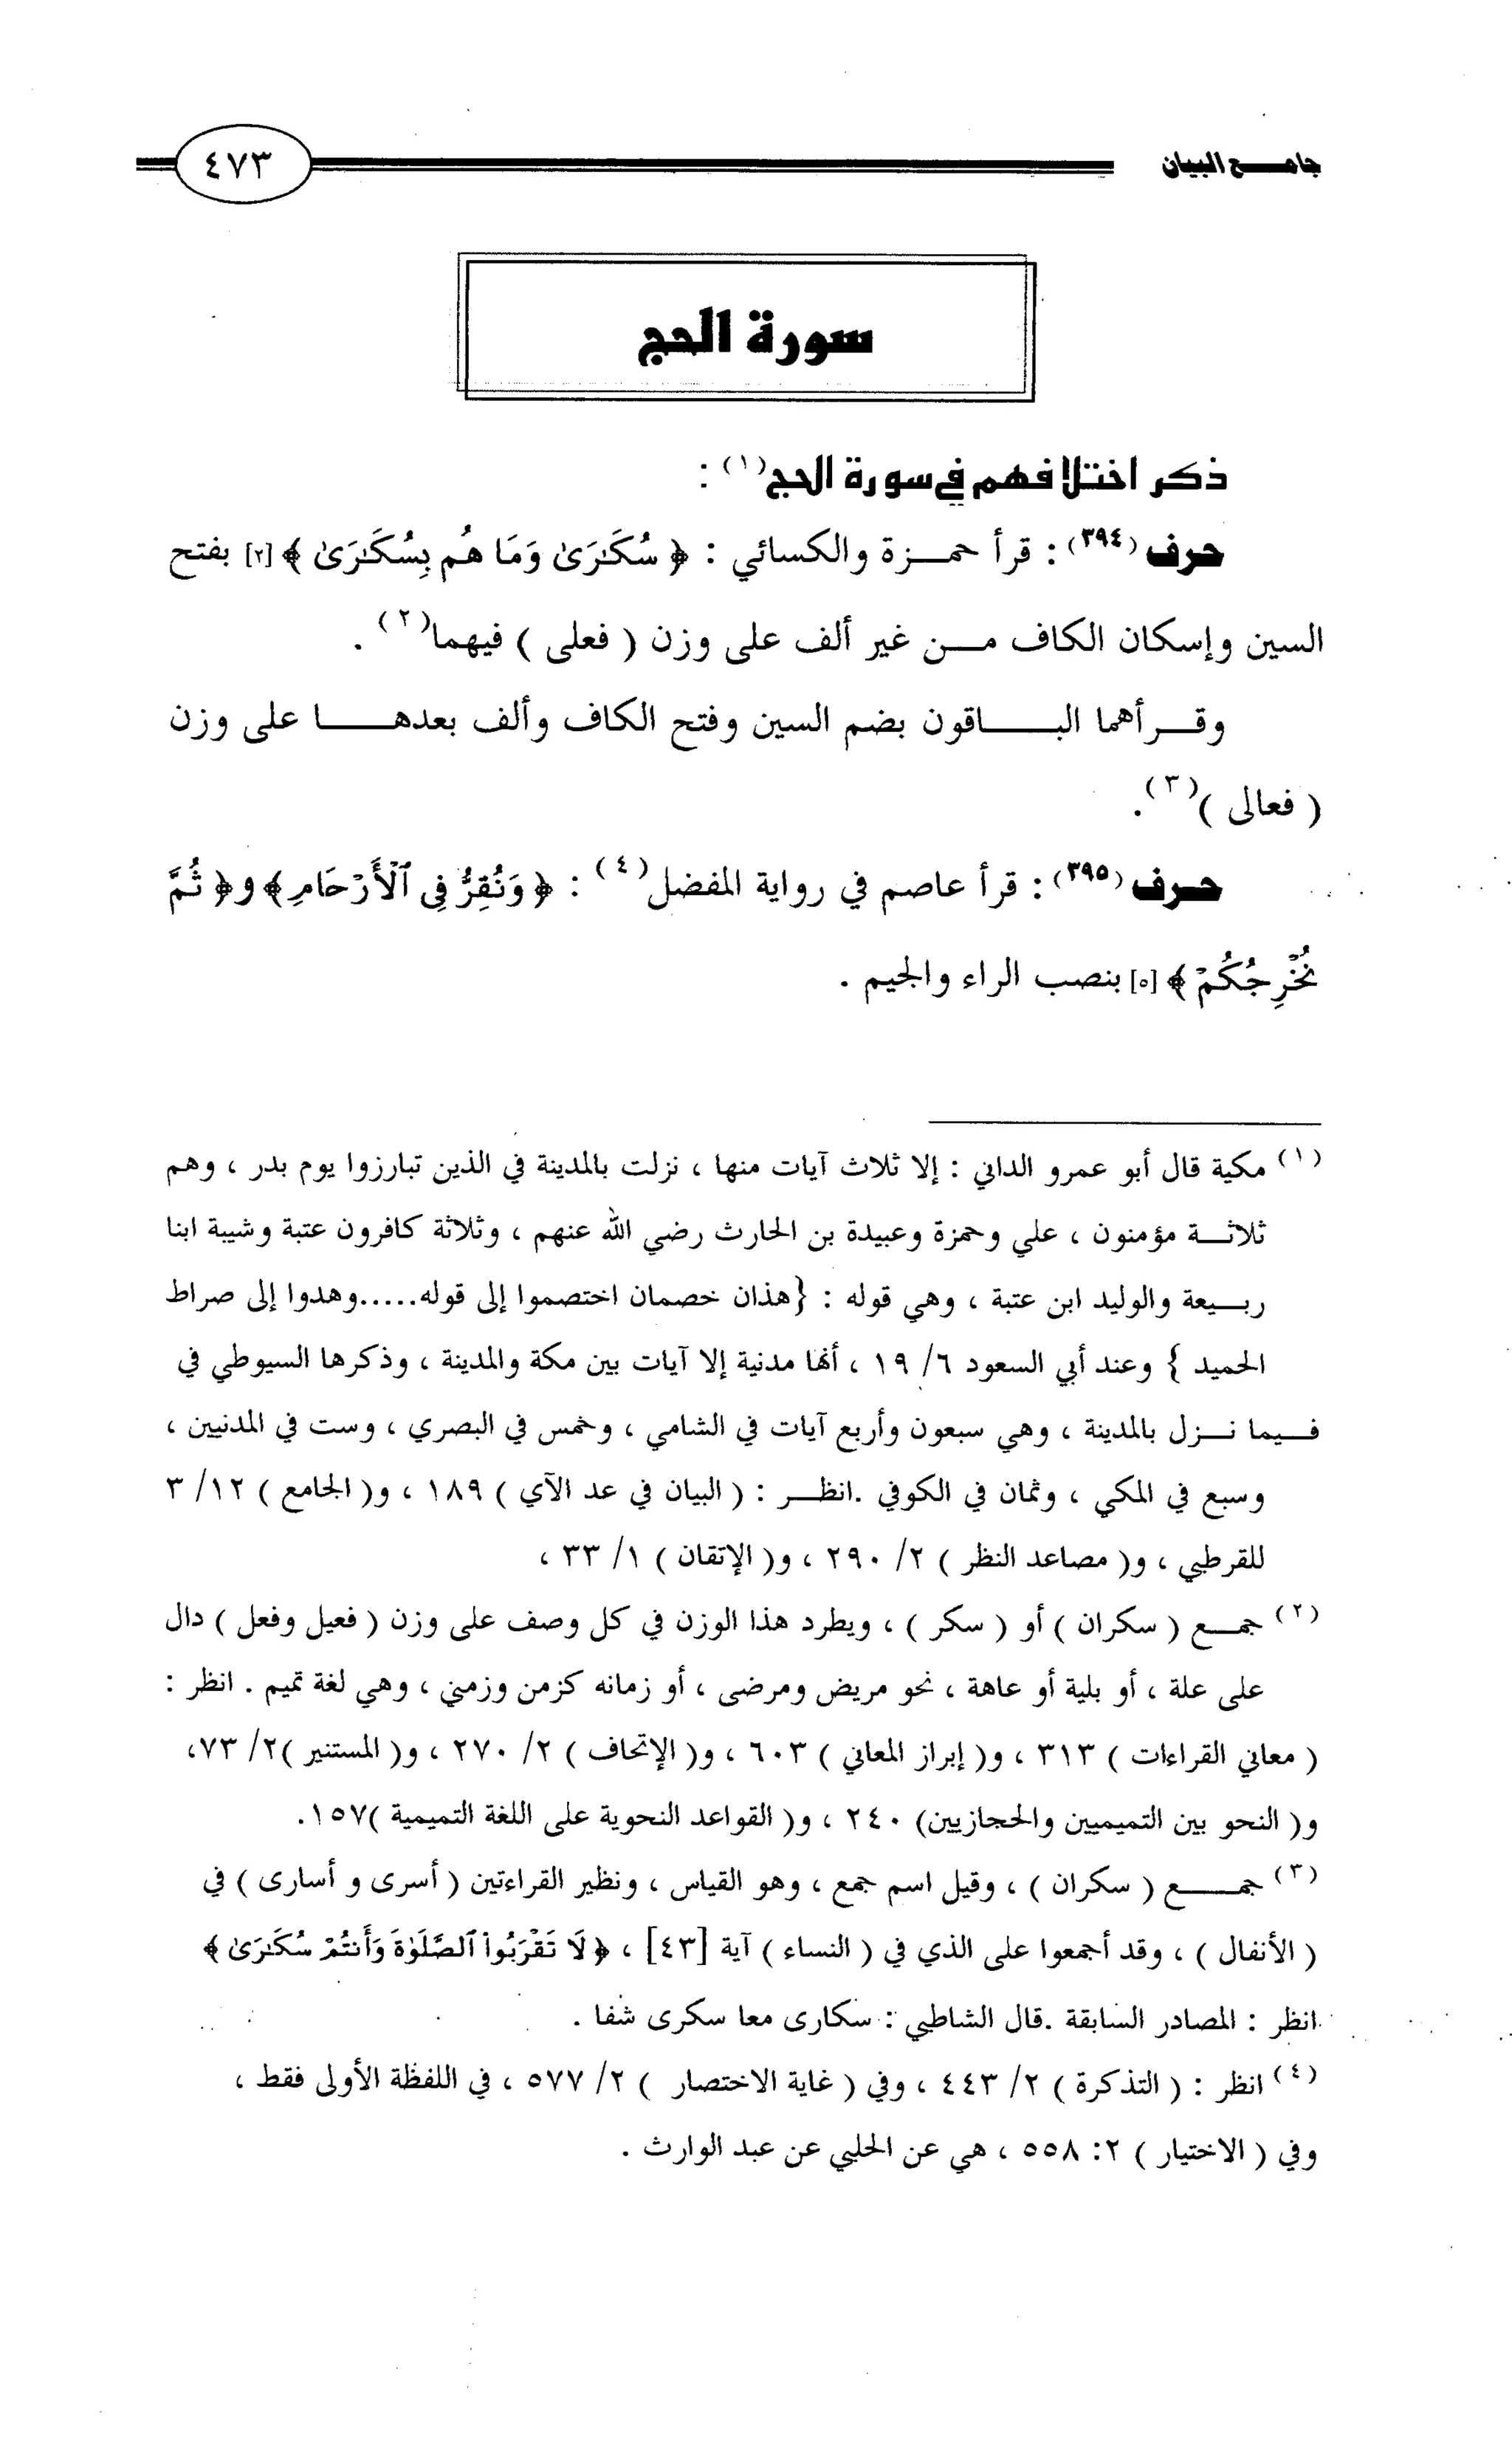 جامع البيان
٤٧٣
سورة الحج
ذكر اختلافهم في سورة الحج(١) :
حرف(٣٩٤) : قرأ حمزة والكسائي : ﴿ سُكَٰرَىٰ وَمَا هُم بِسُكَٰرَىٰ ﴾ [٢] بفتح
السين وإسكان الكاف من غير ألف على وزن ( فعلى ) فيهما(٢) .
وقرأهما الباقون بضم السين وفتح الكاف وألف بعدها على وزن
( فعالى )(٣).
حرف(٣٩٥) : قرأ عاصم في رواية المفضل(٤) : ﴿ وَنُقِرُّ فِى ٱلْأَرْحَامِ﴾ و﴿ ثُمَّ
نُخْرِجُكُمْ ﴾ [٥] بنصب الراء والجيم .
(١) مكية قال أبو عمرو الداني : إلا ثلاث آيات منها ، نزلت بالمدينة في الذين تبارزوا يوم بدر ، وهم
ثلاثة مؤمنون ، علي وحمزة وعبيدة بن الحارث رضي الله عنهم ، وثلاثة كافرون عتبة وشيبة ابنا
ربيعة والوليد ابن عتبة ، وهي قوله : {هذان خصمان اختصموا إلى قوله.....وهدوا إلى صراط
الحميد } وعند أبي السعود ٦/ ١٩ ، أنها مدنية إلا آيات بين مكة والمدينة ، وذكرها السيوطي في
فيما نزل بالمدينة ، وهي سبعون وأربع آيات في الشامي ، وخمس في البصري ، وست في المدنيين ،
وسبع في المكي ، وثمان في الكوفي .انظر : ( البيان في عد الآي ) ١٨٩ ، و( الجامع ) ١٢/ ٣
للقرطبي ، و( مصاعد النظر ) ٢/ ٢٩٠ ، و( الإتقان ) ١/ ٣٣ ،
(٢) جمع ( سكران ) أو ( سكر ) ، ويطرد هذا الوزن في كل وصف على وزن ( فعيل وفعل ) دال
على علة ، أو بلية أو عاهة ، نحو مريض ومرضى ، أو زمانه كزمن وزمني ، وهي لغة تميم . انظر :
( معاني القراءات ) ٣١٣ ، و( إبراز المعاني ) ٦٠٣ ، و( الإتحاف ) ٢/ ٢٧٠ ، و( المستنير )٢/ ٧٣،
و( النحو بين التميميين والحجازيين) ٢٤٠ ، و( القواعد النحوية على اللغة التميمية )١٥٧.
(٣) جمع ( سكران ) ، وقيل اسم جمع ، وهو القياس ، ونظير القراءتين ( أسرى و أسارى ) في
( الأنفال ) ، وقد أجمعوا على الذي في ( النساء ) آية [٤٣] ، ﴿ لَا تَقْرَبُوا۟ ٱلصَّلَوٰةَ وَأَنتُمْ سُكَٰرَىٰ ﴾
انظر : المصادر السابقة .قال الشاطبي : سكارى معا سكرى شفا .
(٤) انظر : ( التذكرة ) ٢/ ٤٤٣ ، وفي ( غاية الاختصار ) ٢/ ٥٧٧ ، في اللفظة الأولى فقط ،
وفي ( الاختيار ) ٢: ٥٥٨ ، هي عن الحلبي عن عبد الوارث .